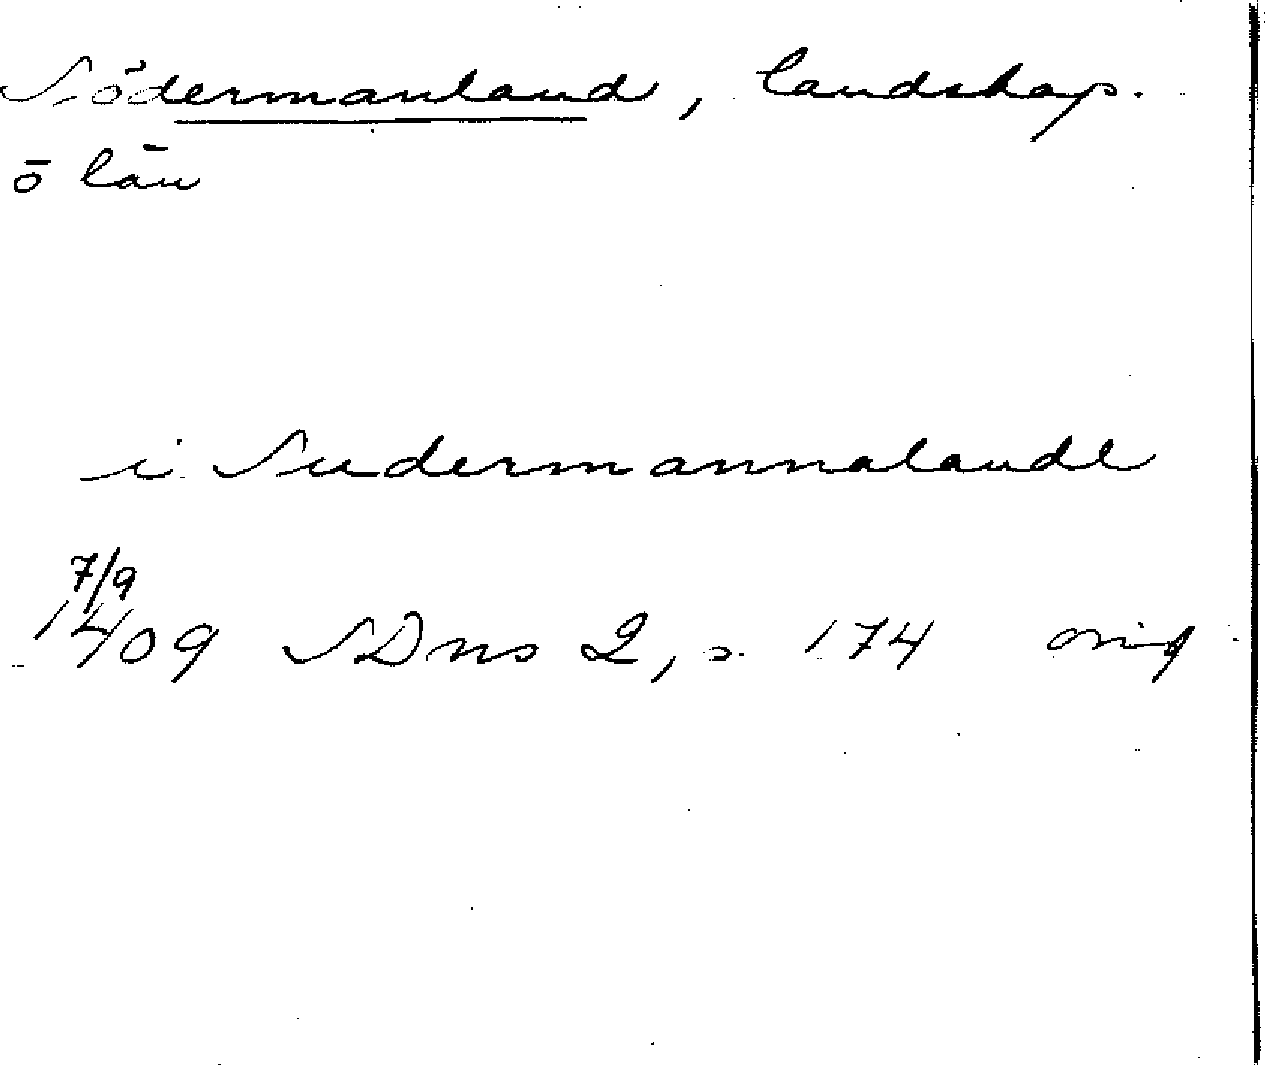 Södermanland, landskap.
ö län
i Sudermannalande
7/9
1409 SDns 2, s. 174 orig